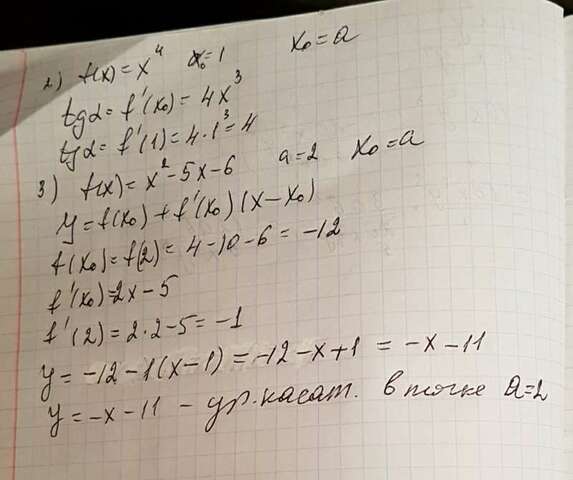 2) f(x) = x⁴ x₀ = 1 x₀ = a
tgα = f'(x₀) = 4x³
tgα = f'(1) = 4·1³ = 4
3) f(x) = x² - 5x - 6 a = 2 x₀ = a
y = f(x₀) + f'(x₀)(x - x₀)
f(x₀) = f(2) = 4 - 10 - 6 = -12
f'(x₀) = 2x - 5
f'(2) = 2·2 - 5 = -1
y = -12 - 1(x - 1) = -12 - x + 1 = -x - 11
y = -x - 11 - ур. касат. в точке a = 2